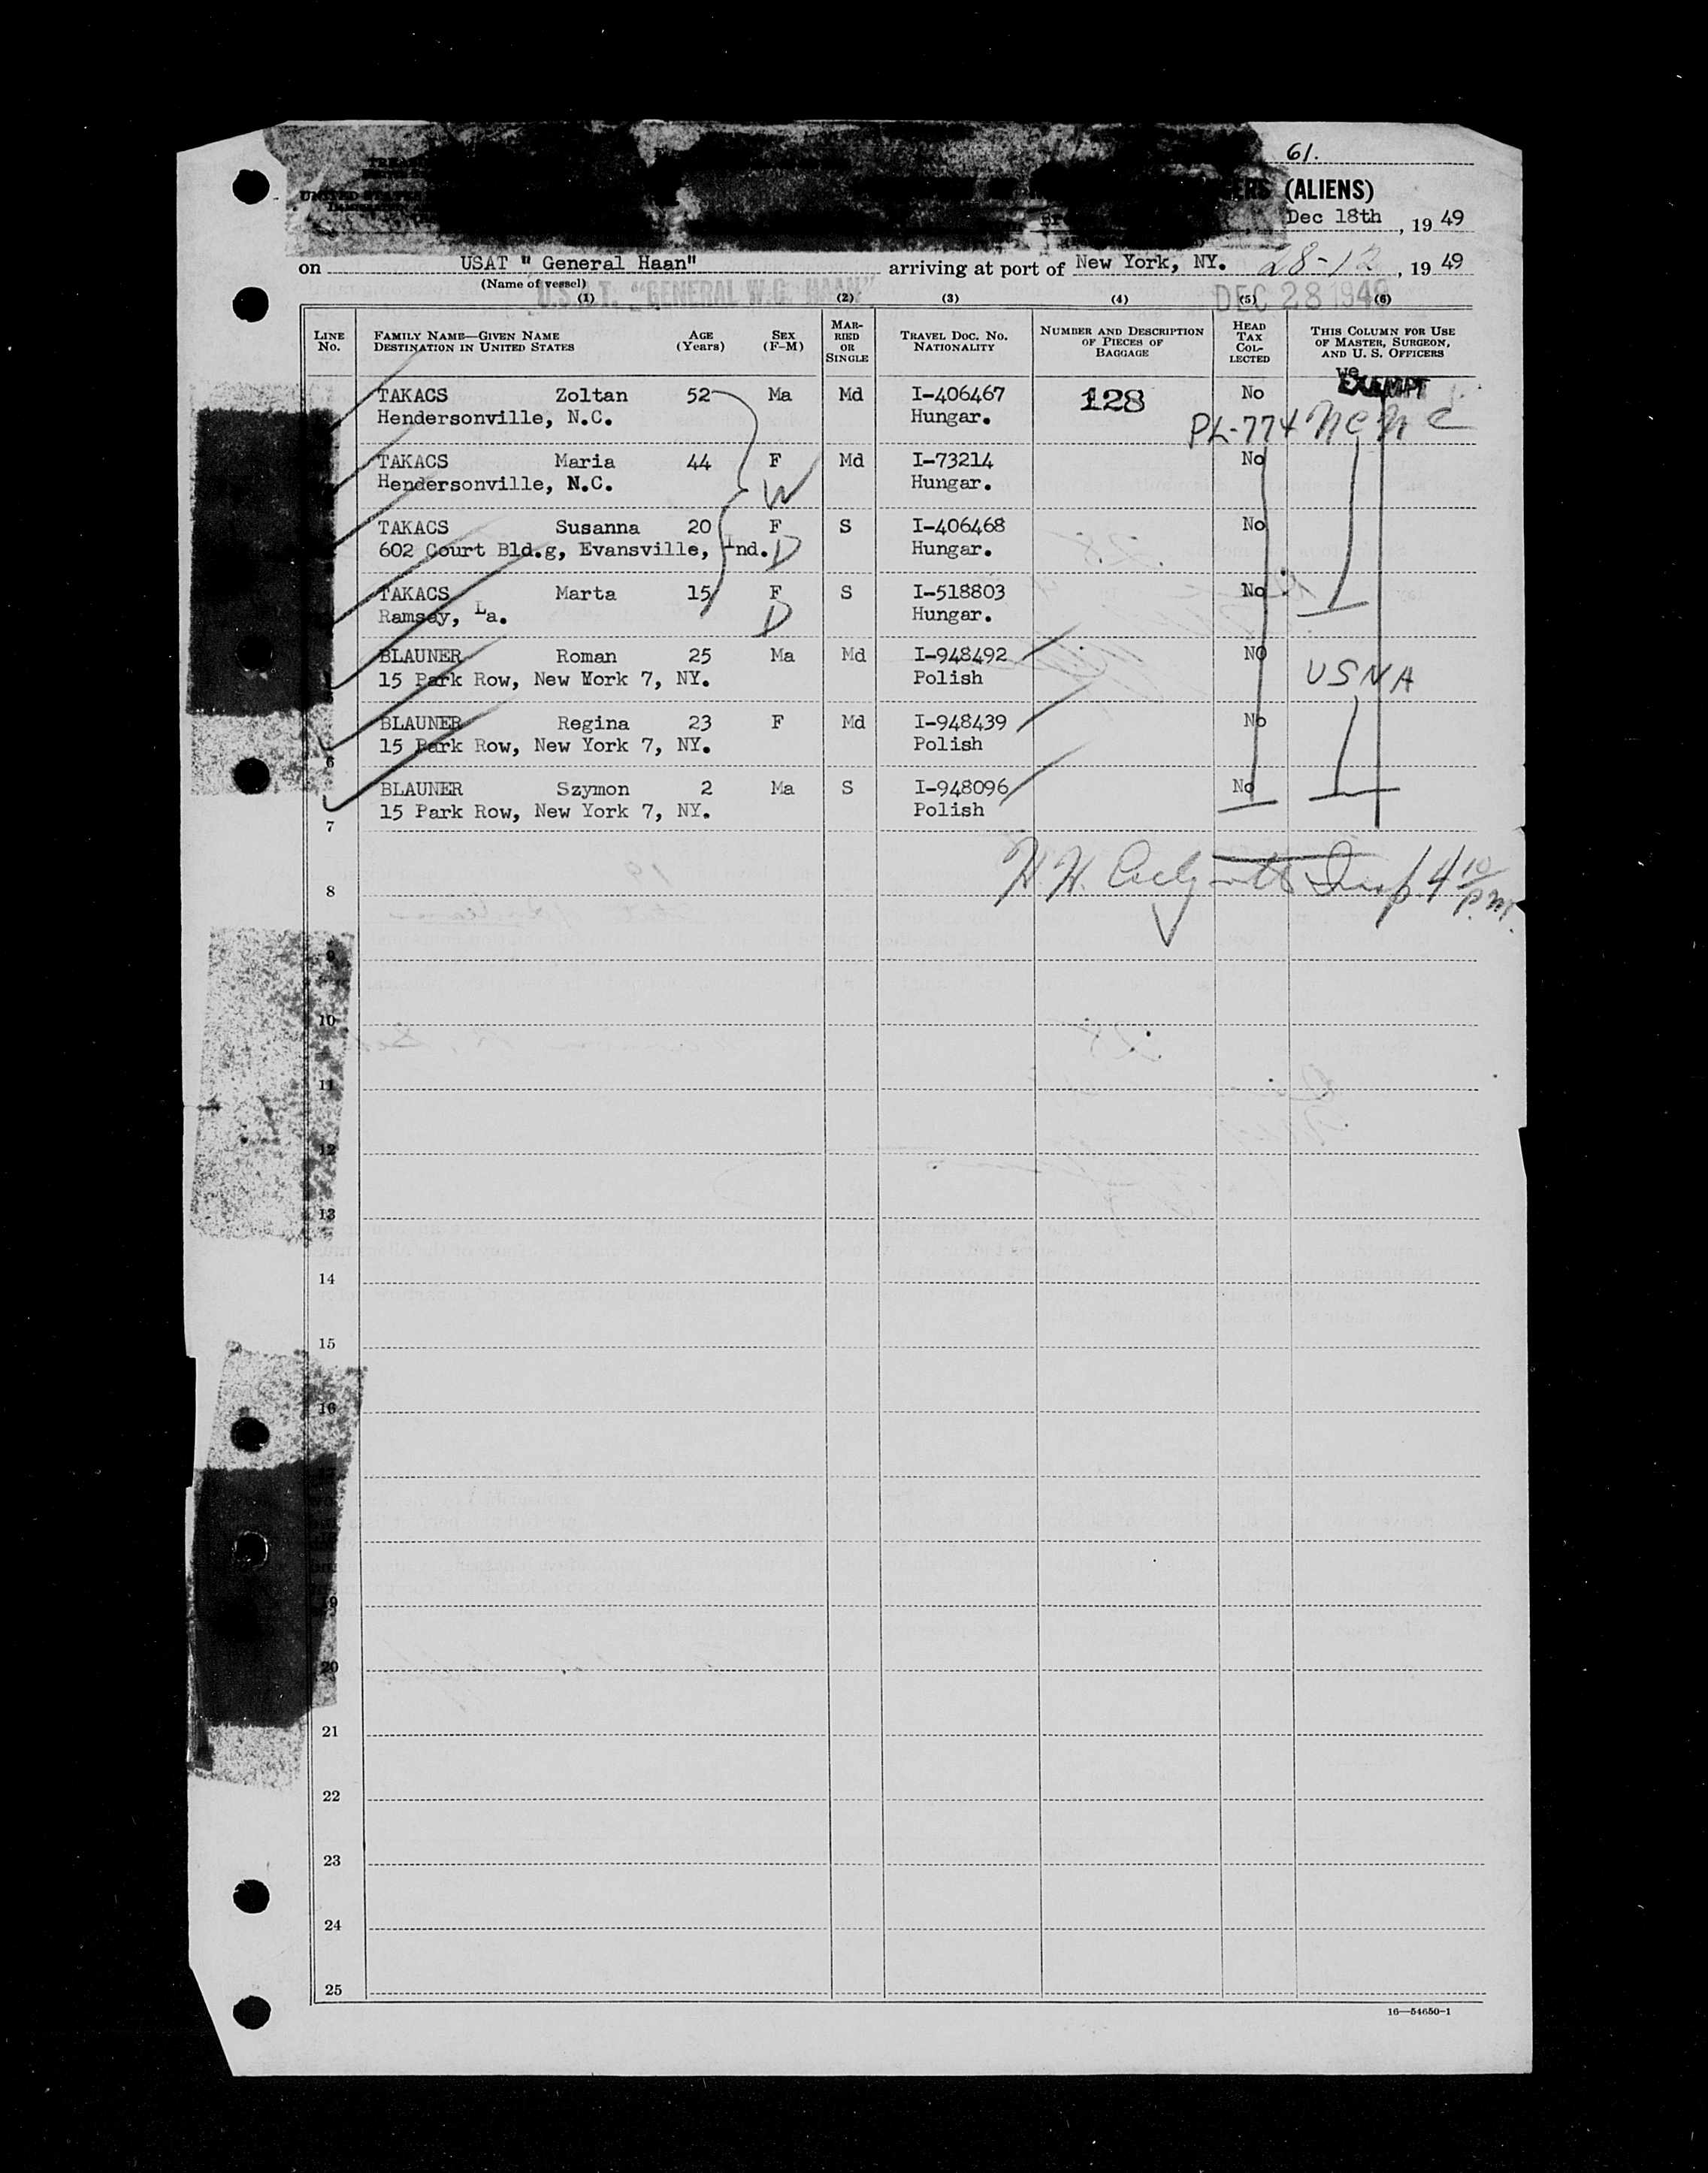 61.
(ALIENS)
Dec 18th, 19 49
on USAT " General Haan" arriving at port of New York, NY. 28-12, 19 49
(Name of vessel)
U.S.A.T. "GENERAL W.G. HAAN" DEC 28 1949
(1) (2) (3) (4) (5) (6)
LINE No. FAMILY NAME—GIVEN NAME DESTINATION IN UNITED STATES AGE (Years) SEX (F-M) MARRIED OR SINGLE TRAVEL DOC. NO. NATIONALITY NUMBER AND DESCRIPTION OF PIECES OF BAGGAGE HEAD TAX COLLECTED THIS COLUMN FOR USE OF MASTER, SURGEON, AND U. S. OFFICERS
TAKACS Zoltan 52 Ma Md I-406467 128 No EXEMPT
Hendersonville, N.C. Hungar. PL-774 NCNC
TAKACS Maria 44 F Md I-73214 No
Hendersonville, N.C. W Hungar.
TAKACS Susanna 20 F S I-406468 No
602 Court Bld.g, Evansville, Ind. D Hungar.
TAKACS Marta 15 F S I-518803 No
Ramsay, La. D Hungar.
BLAUNER Roman 25 Ma Md I-948492 NO
15 Park Row, New York 7, NY. Polish USNA
BLAUNER Regina 23 F Md I-948439 No
15 Park Row, New York 7, NY. Polish
6
BLAUNER Szymon 2 Ma S I-948096 No
15 Park Row, New York 7, NY. Polish
7
H.H. Insp 4 10 P.M.
8
9
10
11
12
13
14
15
16
17
18
19
20
21
22
23
24
25
16—54650-1